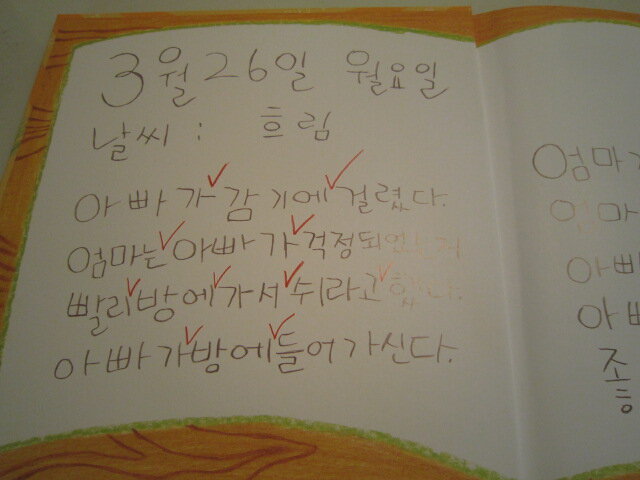 3월 26일 월요일
날씨 : 흐림
아빠가 감기에 걸렸다.
엄마는 아빠가 걱정되
빨리 방에 가서 쉬라고 했다.
아빠가 방에 들어가신다.
엄마
엄마
아빠
아빠